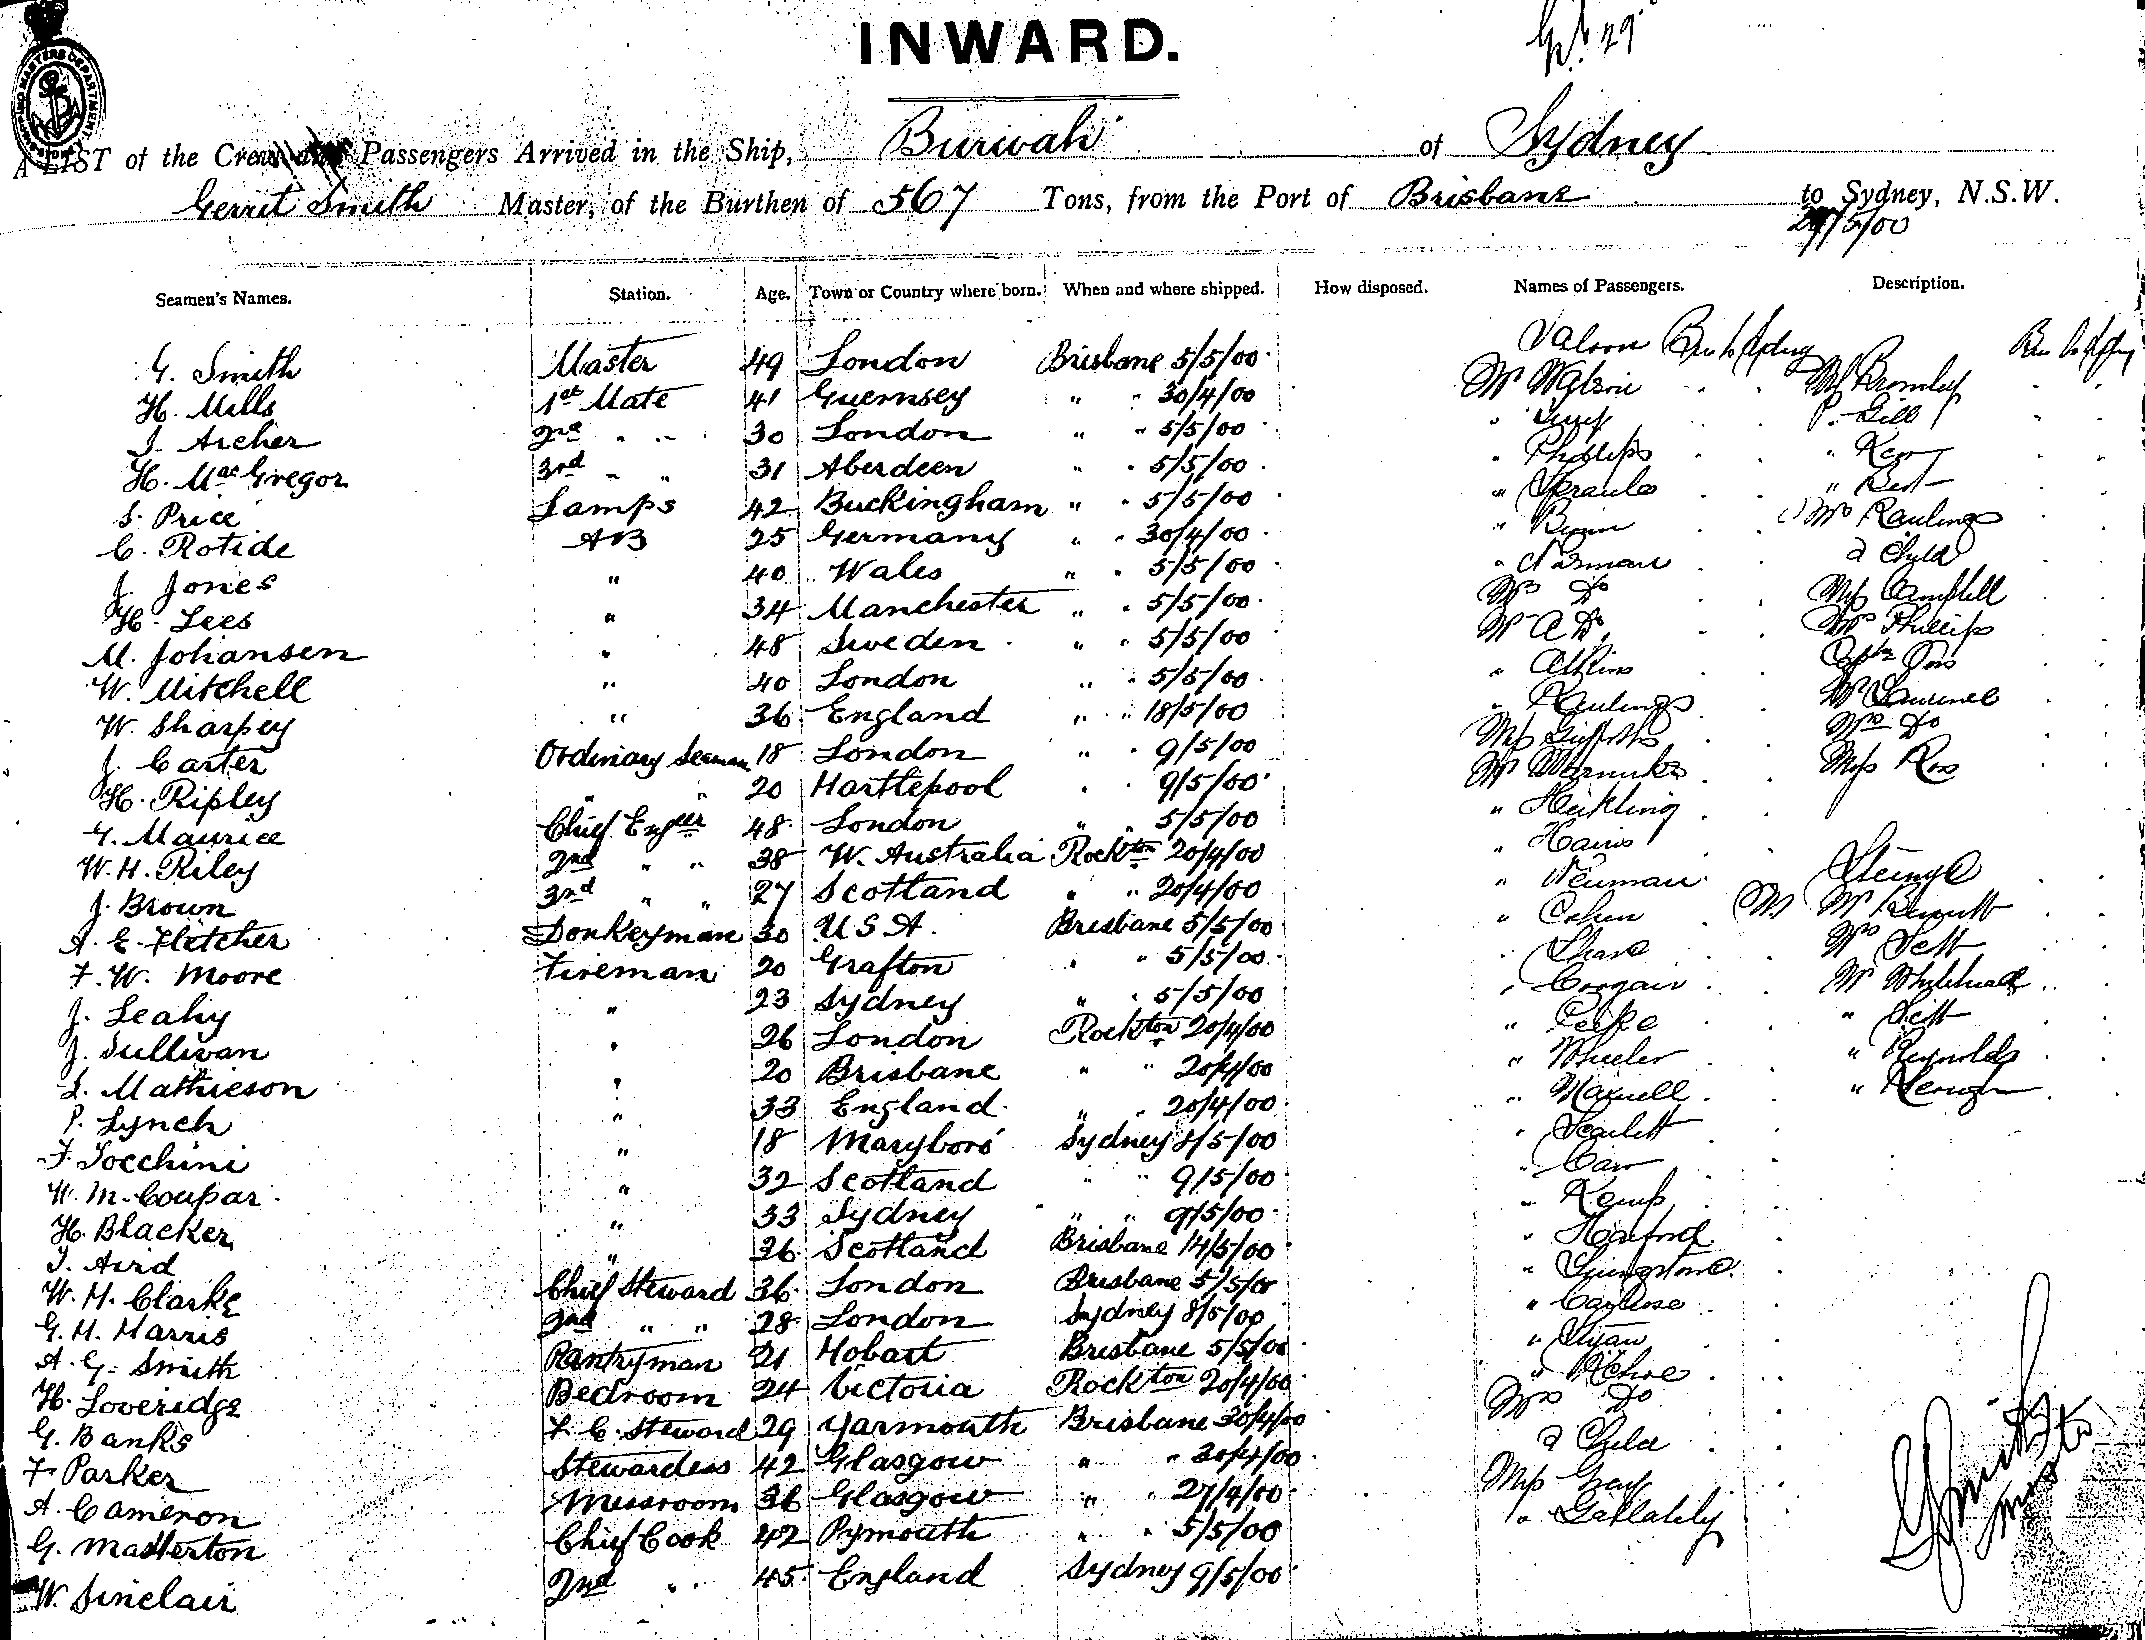 INWARD.
A LIST of the Crew and Passengers Arrived in the Ship, Burwah of Sydney
Gerrit Smith Master, of the Burthen of 567 Tons, from the Port of Brisbane to Sydney, N.S.W.
/5/00
Seamen's Names. Station. Age. Town or Country where born. When and where shipped. How disposed. Names of Passengers. Description.
Saloon
G. Smith Master 49 London Brisbane 5/5/00 Mr Watson
H. Mills 1st Mate 41 Guernsey " " 30/4/00 "
J. Archer 2nd " " 30 London " " 5/5/00 " Phillips " Kerr
H. MacGregor 3rd " " 31 Aberdeen " " 5/5/00 "
S. Price Lamps 42 Buckingham " " 5/5/00 " Mrs Raulings
C. Rotide AB 25 Germany " " 30/4/00 " Norman a Child
J. Jones " 40 Wales " " 5/5/00 Mrs Do Miss Campbell
H. Lees " 34 Manchester " " 5/5/00 Mr A Do Mr Phillips
M. Johansen " 48 Sweden " " 5/5/00 " Atkins
W. Mitchell " 40 London " " 5/5/00 " Raulings Mr Laurence
W. Sharpey " 36 England " " 18/5/00 Miss Griffiths Mrs Do
J. Carter Ordinary Seaman 18 London " " 9/5/00 Mr Miss Ross
H. Ripley " " 20 Hartlepool " " 9/5/00 " Heckling
G. Maurice Chief Engeer 48 London " " 5/5/00 " Hains
W. H. Riley 2nd " " 38 W. Australia Rockton 20/4/00 " Neuman Steerage
J. Brown 3rd " " 27 Scotland " " 20/4/00 " Cohen Mr Bennett
A. E. Fletcher Donkeyman 30 U S A. Brisbane 5/5/00 " Share Mrs Sett
F. W. Moore Fireman 20 Grafton " " 5/5/00 " Mr Whitehead
J. Leahy " 23 Sydney " " 5/5/00 " " Sett
J. Sullivan " 26 London Rockton 20/4/00 " Wheeler " Reynolds
L. Mathieson " 20 Brisbane " " 20/4/00 " Maxwell "
P. Lynch " 33 England " " 20/4/00 " Scarlett
F. Tocchini " 18 Maryboro' Sydney 8/5/00 " Carr
W. M. Coupar " 32 Scotland " " 9/5/00 " Kemp
H. Blacker " 33 Sydney " " 9/5/00 " Hanford
J. Aird " 26 Scotland Brisbane 14/5/00 " Livingstone
W. H. Clarke Chief Steward 36 London Brisbane 5/5/00 "
G. H. Harris 2nd " " 28 London Sydney 8/5/00 "
A. G. Smith Pantryman 21 Hobart Brisbane 5/5/00 "
H. Loveridge Bedroom 24 Victoria Rockton 20/4/00 Mrs Do
G. Banks F. C. Steward 29 Yarmouth Brisbane 30/4/00 a Child
F. Parker Stewardess 42 Glasgow " " 30/4/00 Miss Gray
A. Cameron Messroom 36 Glasgow " " 27/4/00 " Gallately
G. Masterton Chief Cook 42 Pymouth " " 5/5/00
W. Sinclair 2nd " 45 England Sydney 9/5/00
G Smith
Master